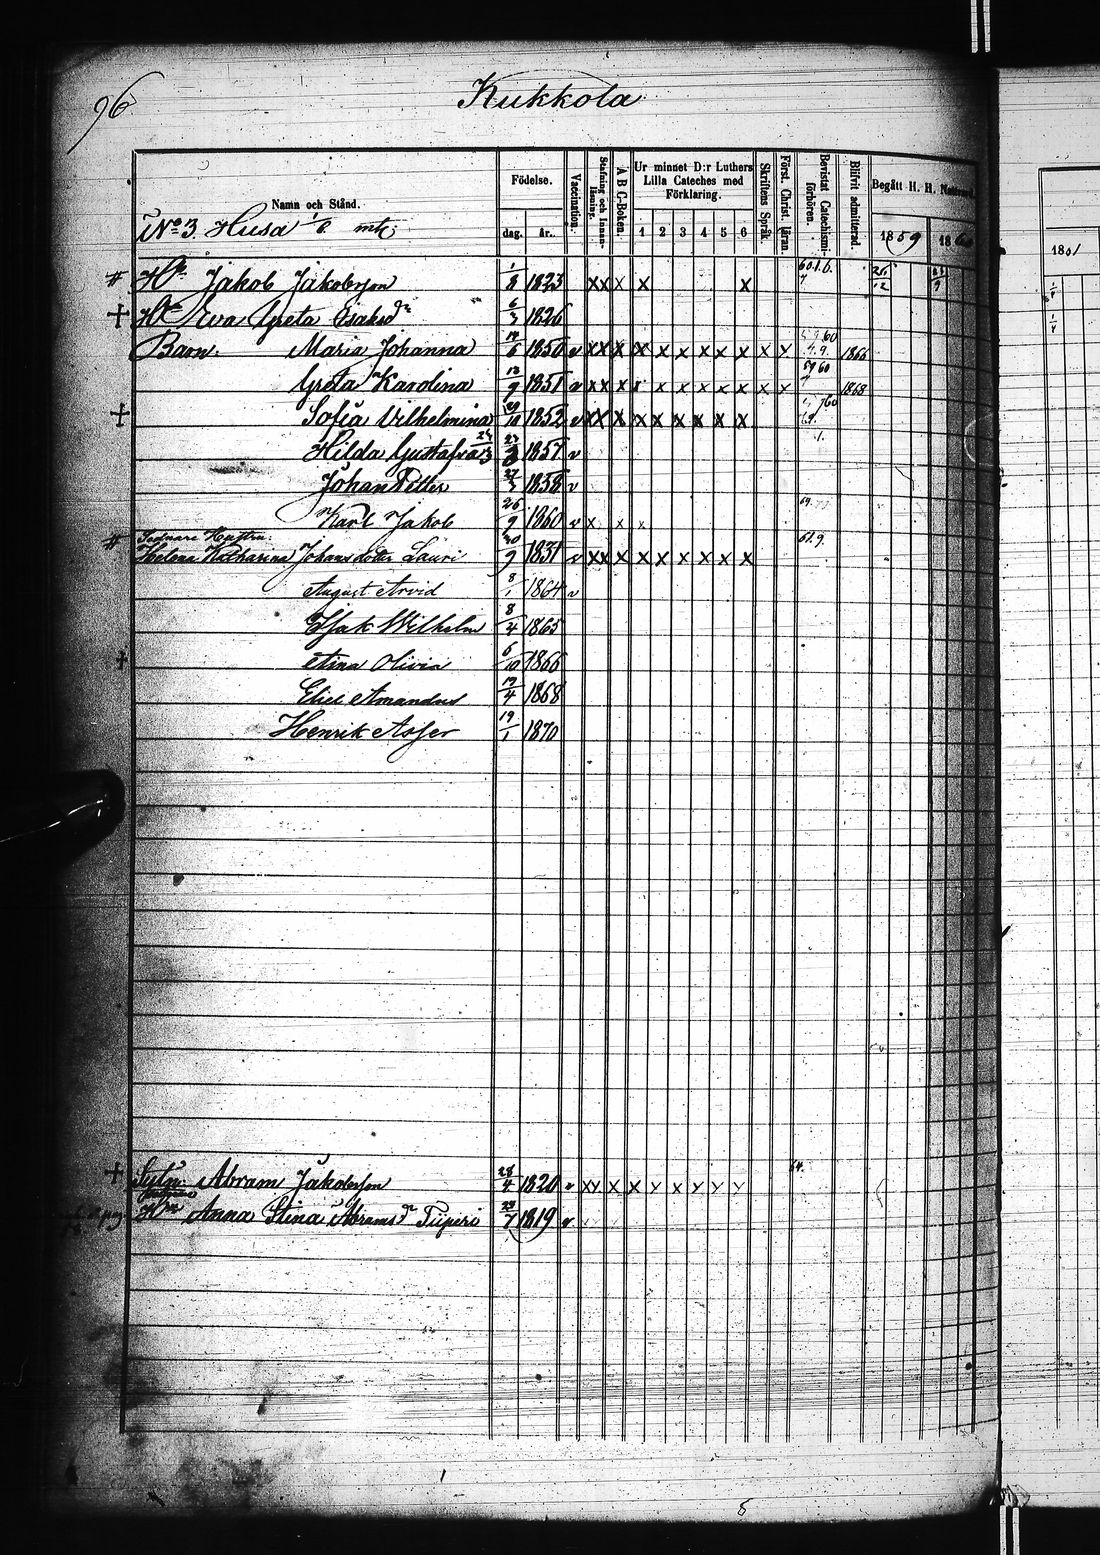 96
Kukkola
Namn och Stånd.
Födelse.
dag.
år.
Vaccination.
Stafning och Innanläsning.
A B C-Boken.
Ur minnet D:r Luthers
Lilla Cateches med
Förklaring.
1 2 3 4 5 6
Skriftens Språk.
Först. Christ. läran.
Bevistat Catechismiförhören.
Blifvit admitterad.
Begått H. H. Nattvard
1859
1860
1861
No 3. Husa 1/6 mtl:
Jakob Jakobsson 1/8 1823 x x x x x 25/12
Eva Greta Isaksdr 6/3 1826
Barn: Maria Johanna 1850 v x x x x x x x x x x x 1866
Greta Karolina 1851 v x x x x x x x x x x x 1868
Sofia Vilhelmina 1852 v x x x x x x x x x
Hilda Gustafva 1857 v
Johan Petter 1858 v
Karl Jakob 26/9 1860 v x x x
Sednare Hustru: 62.9.
Helena Katharina Johansdotter Lauri 20/9 1831 v x x x x x x x x x
August Arvid 8/1 1864 v
Isak Wilhelm 8/4 1865
Aina Olivia 6/10 1866
Eliel Amandus 19/4 1868
Henrik Asser 19/1 1870
64.
Sytn: Abram Jakobsson 28/4 1820 v x x x x x x x x x
Anna Stina Abramsdr Tiiperi 1819 v